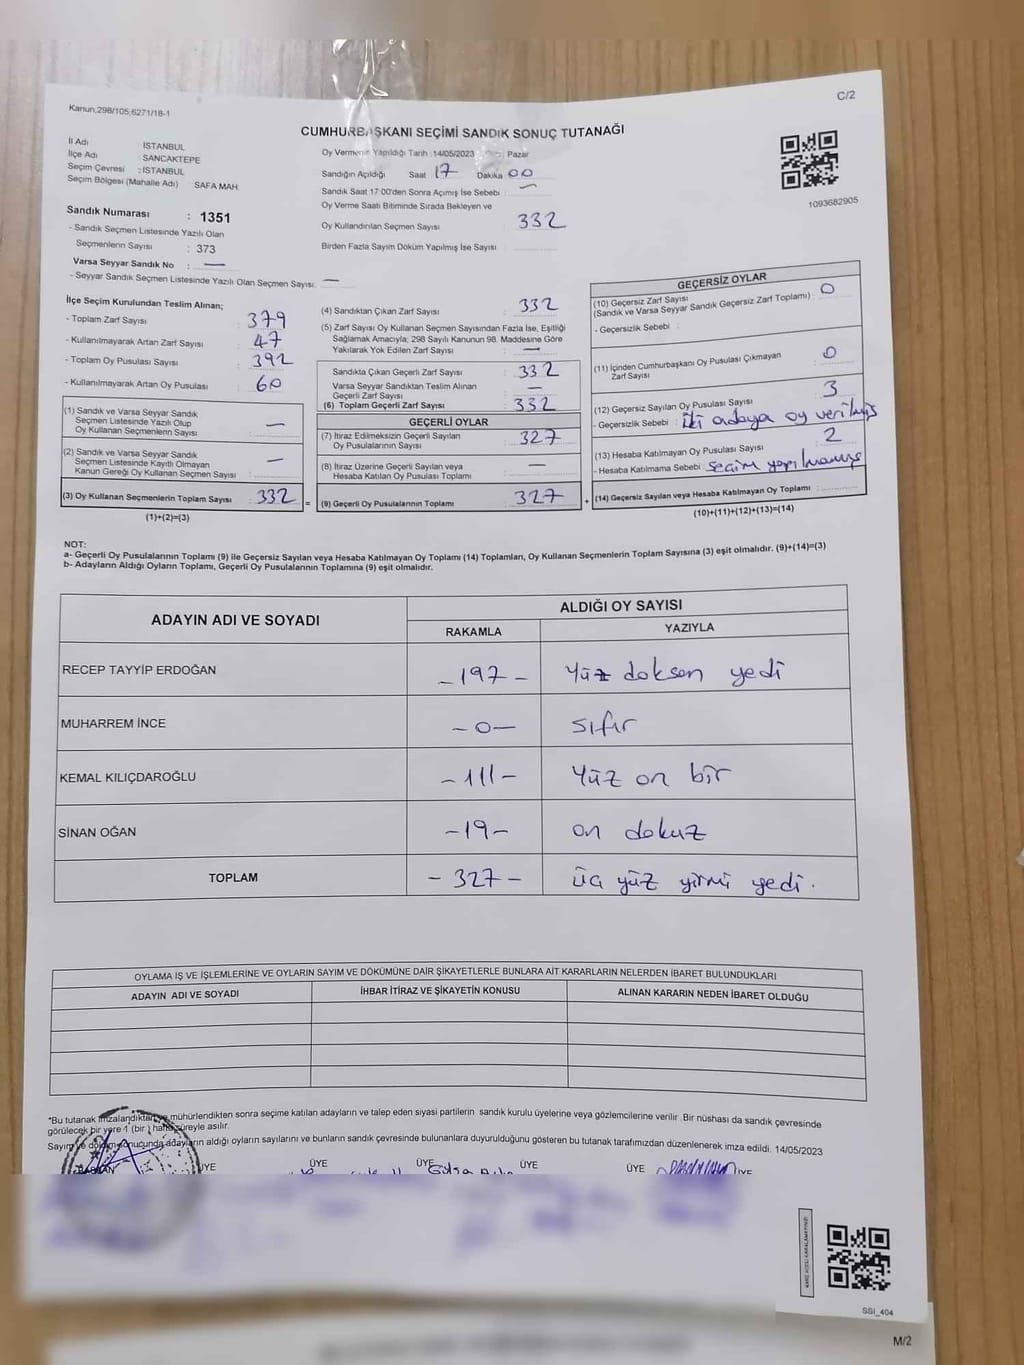 Kanun;298/105;6271/18-1
C/2
CUMHURBAŞKANI SEÇİMİ SANDIK SONUÇ TUTANAĞI
İl Adı : İSTANBUL
İlçe Adı : SANCAKTEPE
Seçim Çevresi : İSTANBUL
Seçim Bölgesi (Mahalle Adı) SAFA MAH.
Oy Vermenin Yapıldığı Tarih :14/05/2023 : Pazar
Sandığın Açıldığı Saat 17 Dakika 00
Sandık Saat 17:00'den Sonra Açımış İse Sebebi : —
Oy Verme Saati Bitiminde Sırada Bekleyen ve
Oy Kullandırılan Seçmen Sayısı : 332
Birden Fazla Sayım Döküm Yapılmış İse Sayısı :
1093682905
Sandık Numarası : 1351
- Sandık Seçmen Listesinde Yazılı Olan
Seçmenlerin Sayısı : 373
Varsa Seyyar Sandık No : —
- Seyyar Sandık Seçmen Listesinde Yazılı Olan Seçmen Sayısı: —
İlçe Seçim Kurulundan Teslim Alınan;
- Toplam Zarf Sayısı : 379
- Kullanılmayarak Artan Zarf Sayısı : 47
- Toplam Oy Pusulası Sayısı : 392
- Kullanılmayarak Artan Oy Pusulası : 60
(1) Sandık ve Varsa Seyyar Sandık
Seçmen Listesinde Yazılı Olup
Oy Kullanan Seçmenlerin Sayısı : —
(2) Sandık ve Varsa Seyyar Sandık
Seçmen Listesinde Kayıtlı Olmayan
Kanun Gereği Oy Kullanan Seçmen Sayısı : —
(3) Oy Kullanan Seçmenlerin Toplam Sayısı : 332 =
(1)+(2)=(3)
(4) Sandıktan Çıkan Zarf Sayısı : 332
(5) Zarf Sayısı Oy Kullanan Seçmen Sayısından Fazla İse, Eşitliği
Sağlamak Amacıyla; 298 Sayılı Kanunun 98. Maddesine Göre
Yakılarak Yok Edilen Zarf Sayısı : —
Sandıkta Çıkan Geçerli Zarf Sayısı : 332
Varsa Seyyar Sandıktan Teslim Alınan
Geçerli Zarf Sayısı : —
(6) Toplam Geçerli Zarf Sayısı : 332
GEÇERLİ OYLAR
(7) İtiraz Edilmeksizin Geçerli Sayılan
Oy Pusulalarının Sayısı : 327
(8) İtiraz Üzerine Geçerli Sayılan veya
Hesaba Katılan Oy Pusulası Toplamı : —
(9) Geçerli Oy Pusulalarının Toplamı : 327 +
GEÇERSİZ OYLAR
(10) Geçersiz Zarf Sayısı
(Sandık ve Varsa Seyyar Sandık Geçersiz Zarf Toplamı) : 0
- Geçersizlik Sebebi :
(11) İçinden Cumhurbaşkanı Oy Pusulası Çıkmayan
Zarf Sayısı : 0
(12) Geçersiz Sayılan Oy Pusulası Sayısı : 3
- Geçersizlik Sebebi : iki adaya oy verilmiş
(13) Hesaba Katılmayan Oy Pusulası Sayısı : 2
- Hesaba Katılmama Sebebi : seçim yapılmamış
(14) Geçersiz Sayılan veya Hesaba Katılmayan Oy Toplamı :
(10)+(11)+(12)+(13)=(14)
NOT:
a- Geçerli Oy Pusulalarının Toplamı (9) ile Geçersiz Sayılan veya Hesaba Katılmayan Oy Toplamı (14) Toplamları, Oy Kullanan Seçmenlerin Toplam Sayısına (3) eşit olmalıdır. (9)+(14)=(3)
b- Adayların Aldığı Oyların Toplamı, Geçerli Oy Pusulalarının Toplamına (9) eşit olmalıdır.
ADAYIN ADI VE SOYADI
ALDIĞI OY SAYISI
RAKAMLA YAZIYLA
RECEP TAYYİP ERDOĞAN -197- Yüz doksan yedi
MUHARREM İNCE -0- sıfır
KEMAL KILIÇDAROĞLU -111- Yüz on bir
SİNAN OĞAN -19- on dokuz
TOPLAM -327- üç yüz yirmi yedi.
OYLAMA İŞ VE İŞLEMLERİNE VE OYLARIN SAYIM VE DÖKÜMÜNE DAİR ŞİKAYETLERLE BUNLARA AİT KARARLARIN NELERDEN İBARET BULUNDUKLARI
ADAYIN ADI VE SOYADI İHBAR İTİRAZ VE ŞİKAYETİN KONUSU ALINAN KARARIN NEDEN İBARET OLDUĞU
*Bu tutanak imzalandıktan ve mühürlendikten sonra seçime katılan adayların ve talep eden siyasi partilerin sandık kurulu üyelerine veya gözlemcilerine verilir. Bir nüshası da sandık çevresinde
görülecek bir yere 1 (bir ) hafta süreyle asılır.
Sayım ve döküm sonucunda adayların aldığı oyların sayılarını ve bunların sandık çevresinde bulunanlara duyurulduğunu gösteren bu tutanak tarafımızdan düzenlenerek imza edildi. 14/05/2023
BAŞKAN ÜYE ÜYE ÜYE ÜYE ÜYE ÜYE
SSI_404
M/2